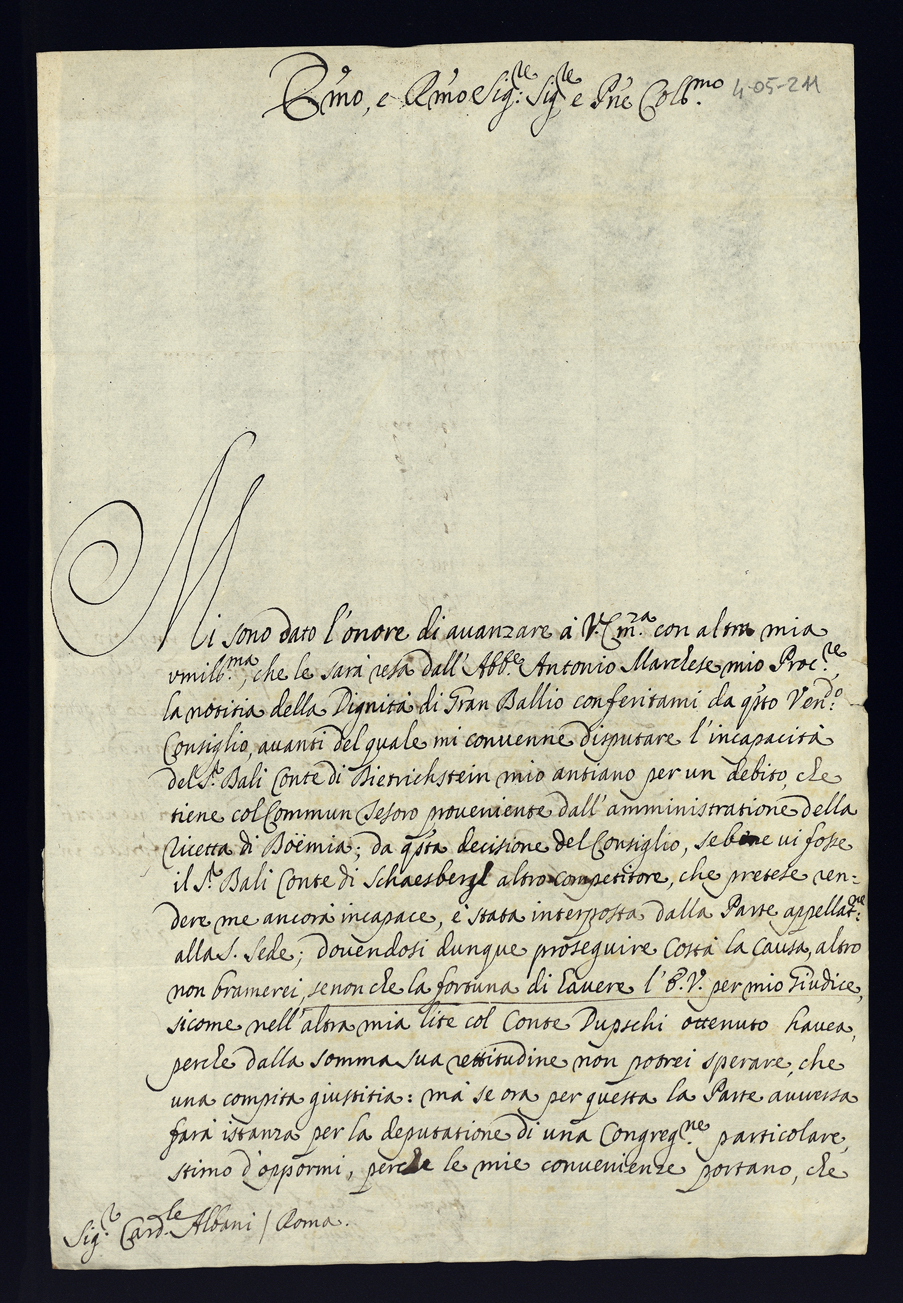 Em̃o, e Rm̃o Sig:re Sig:re e Pñe Colẽmo
4-05-211
Mi sono dato l'onore di auanzare à V. Em.za con altra mia
vmiliss.ma, che le sarà resa dall'Abb.e Antonio Marchese mio Proc.re
la notitia della Dignità di Gran Ballio conferitami da q̃sto Ven:do
Consiglio, auanti del quale mi conuenne disputare l'incapacità
del S.r Bali Conte di Dietrichstein mio antiano per un debito, che
tiene col Commun Tesoro proueniente dall'amministratione della
Ricetta di Boëmia; da q̃sta decisione del Consiglio, sebene ui fosse
il S.r Bali Conte di Schaesbergh altro competitore, che pretese ren:
dere me ancora incapace, è stata interposta dalla Parte appellat:ne
alla S. Sede; douendosi dunque proseguire Costà la Causa, altro
non bramerei, se non che la fortuna di hauere l'E. V. per mio Giudice,
sicome nell'altra mia lite col Conte Dupschi ottenuto hauea,
perche dalla somma sua rettitudine non potrei sperare, che
una compita giustitia: mà se ora per questa la Parte auuersa
farà istanza per la deputatione di una Congreg.ne particolare,
stimo d'oppormi, perche le mie conuenienze portano, che
Sig.r Card.le Albani / Roma.